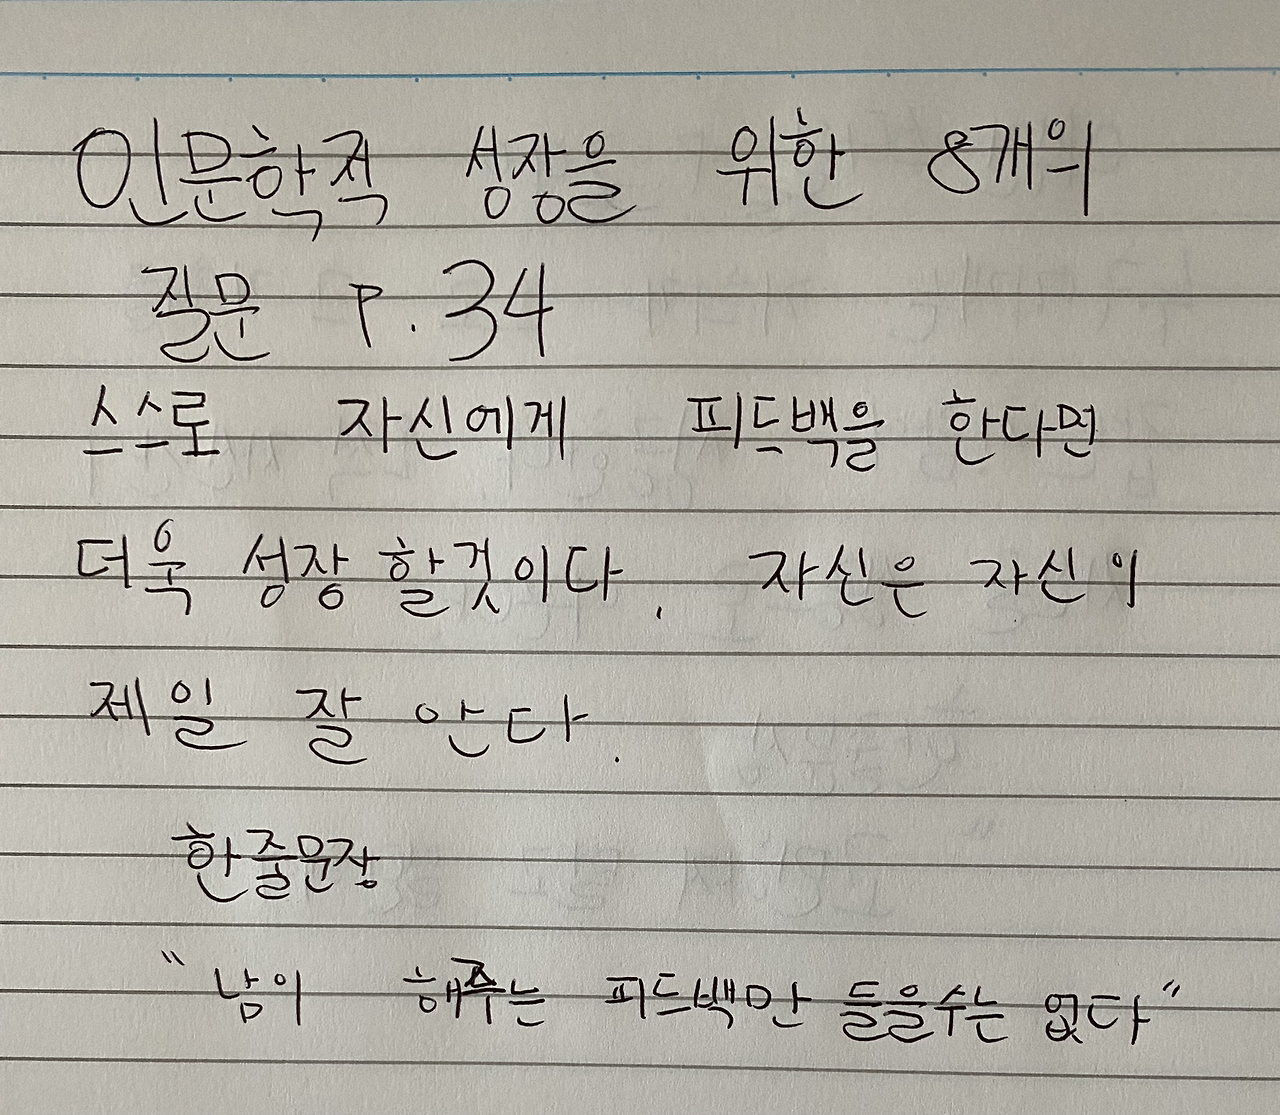 인문학적 성장을 위한 8개의
질문 P.34
스스로 자신에게 피드백을 한다면
더욱 성장 할것이다. 자신은 자신이
제일 잘 안다.
한줄문장
"남이 해주는 피드백만 들을수는 없다"